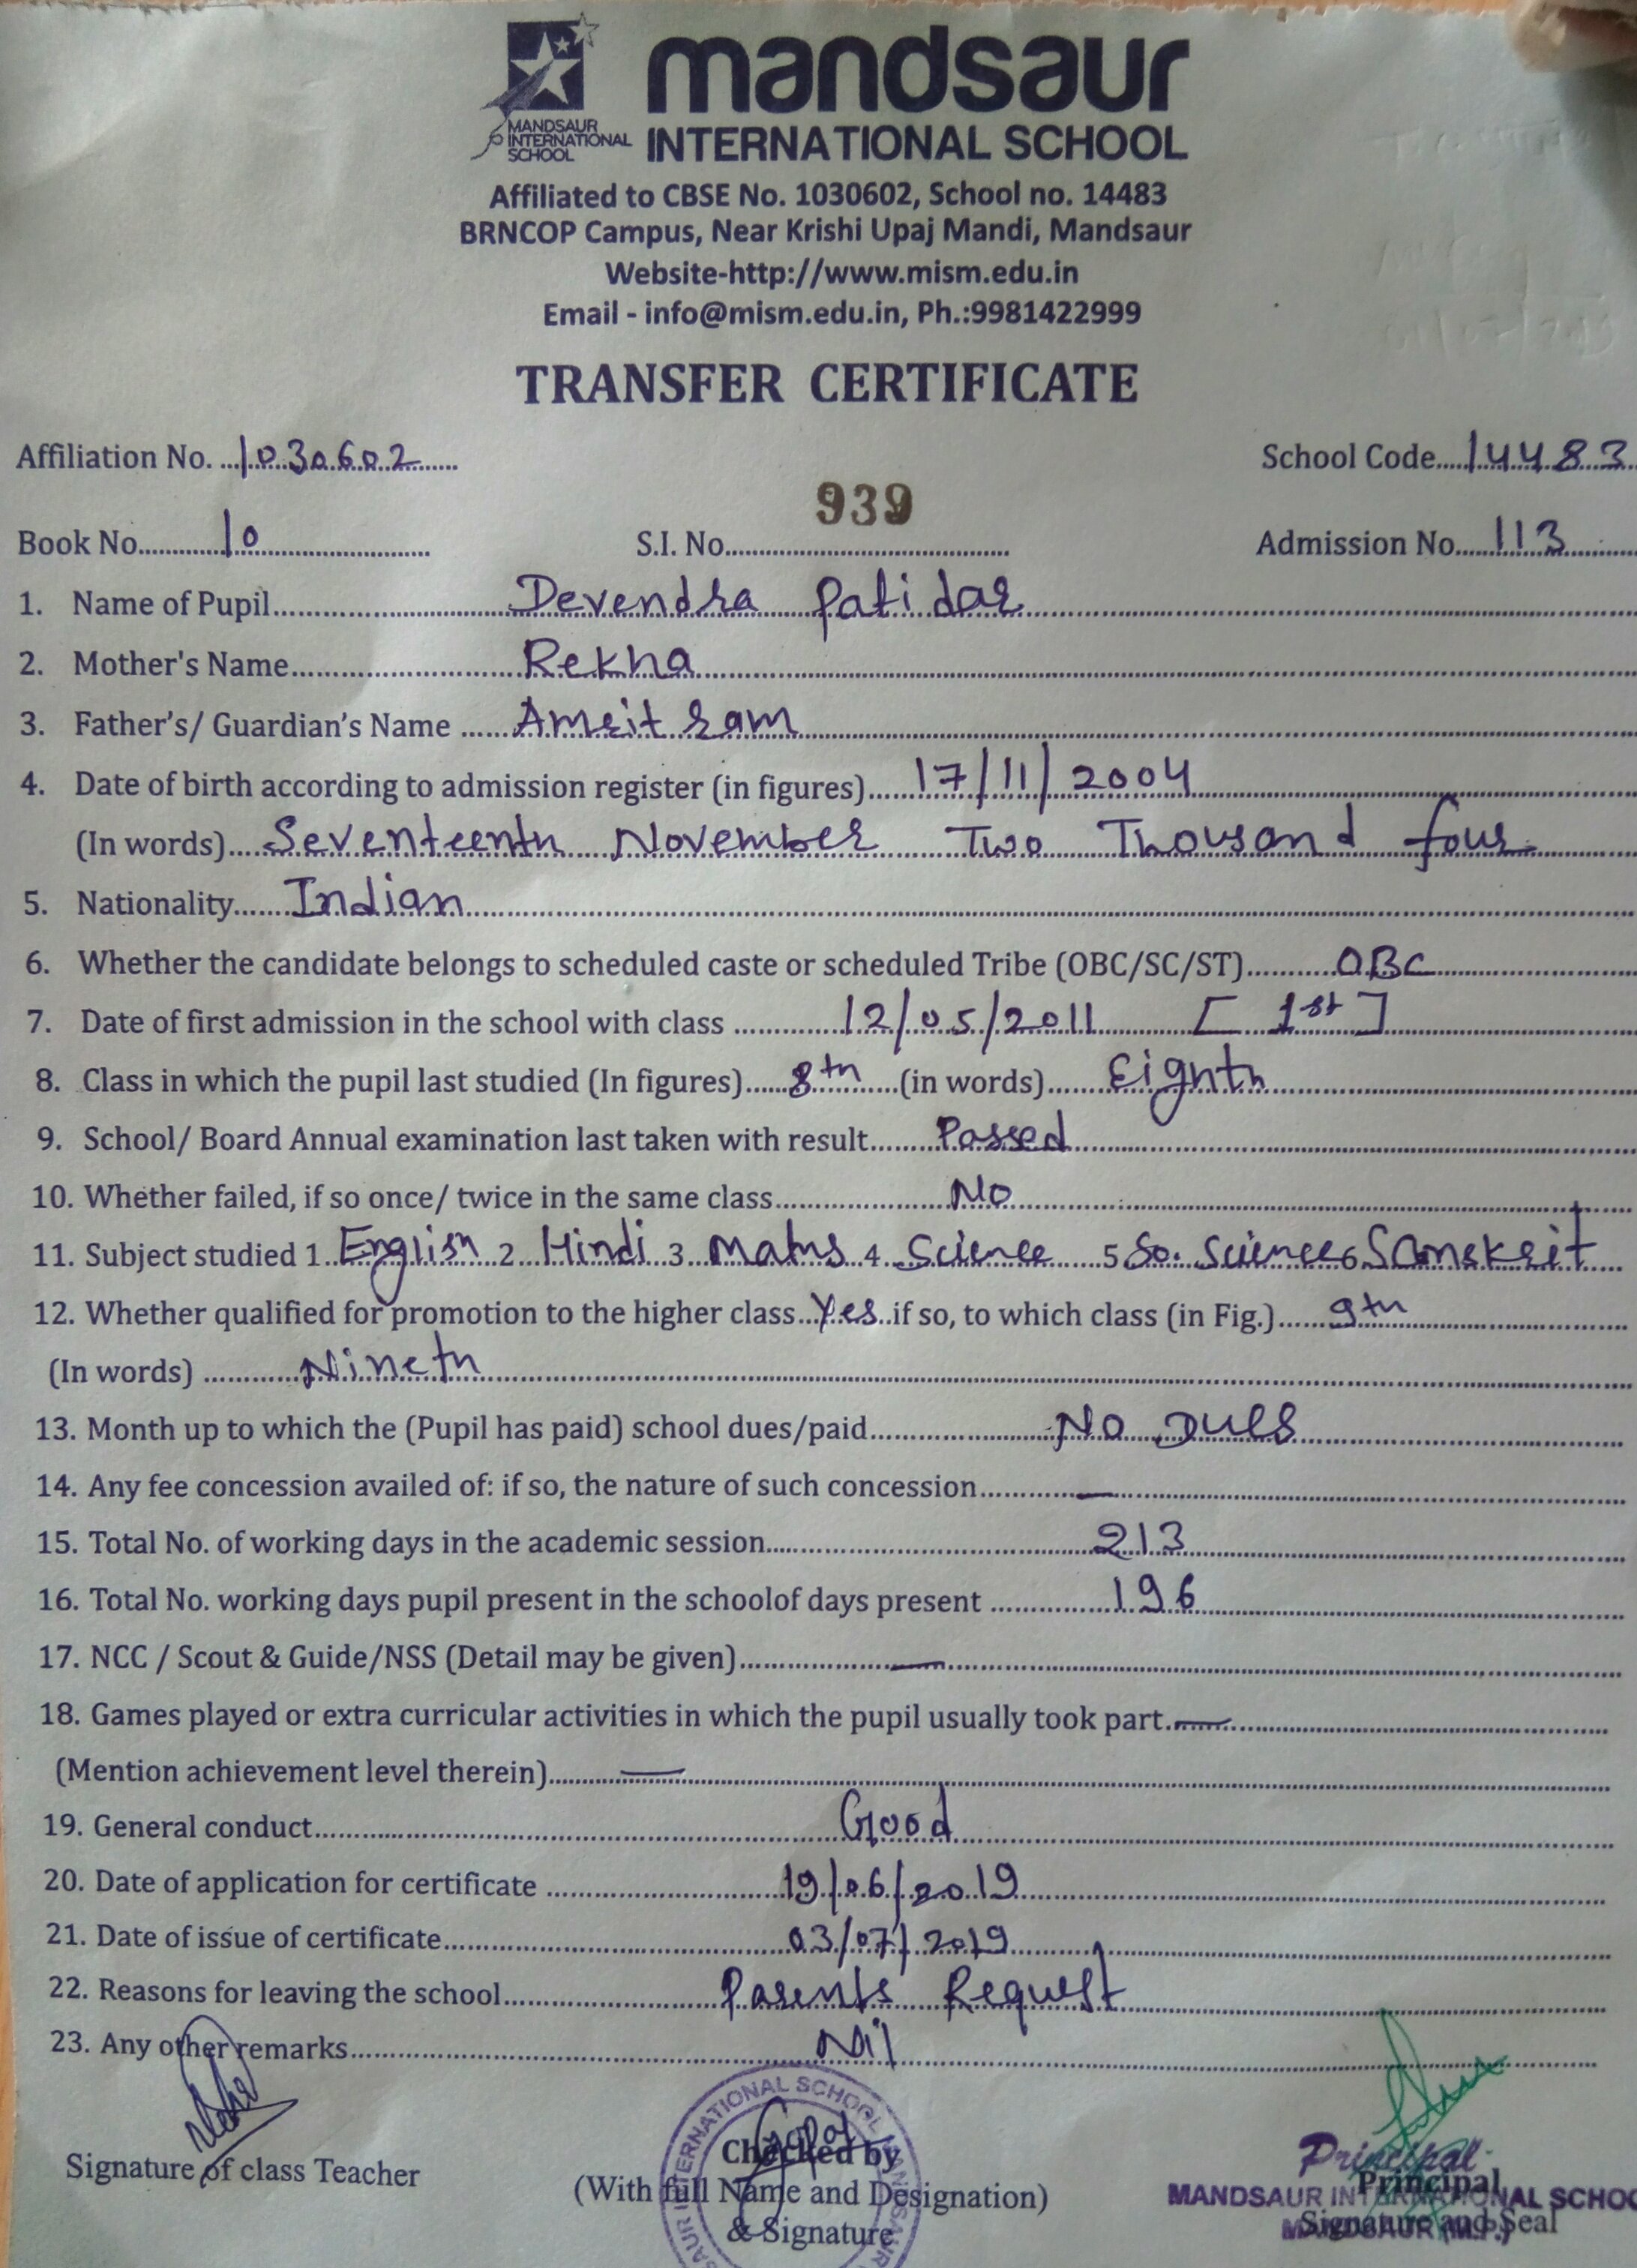 mandsaur
MANDSAUR
INTERNATIONAL
SCHOOL
INTERNATIONAL SCHOOL
Affiliated to CBSE No. 1030602, School no. 14483
BRNCOP Campus, Near Krishi Upaj Mandi, Mandsaur
Website-http://www.mism.edu.in
Email - info@mism.edu.in, Ph.:9981422999
TRANSFER CERTIFICATE
Affiliation No. ...1030602...... School Code.....14483
939
Book No............10.......................... S.I. No............................................ Admission No.....113..........
1. Name of Pupil.................................Devendra Patidar...............
2. Mother's Name................................Rekha...............
3. Father's/ Guardian's Name ......Amrit ram...............
4. Date of birth according to admission register (in figures)......17/11/2004...............
(In words)....Seventeenth November Two Thousand four
5. Nationality.......Indian...............
6. Whether the candidate belongs to scheduled caste or scheduled Tribe (OBC/SC/ST)...........OBC...............
7. Date of first admission in the school with class .............12/05/2011 [ 1st ]...............
8. Class in which the pupil last studied (In figures)......8th.....(in words).......Eighth...............
9. School/ Board Annual examination last taken with result........Passed...............
10. Whether failed, if so once/ twice in the same class......................No...............
11. Subject studied 1..English..2..Hindi..3..Maths..4..Science...5.So. Science.6.Sanskrit....
12. Whether qualified for promotion to the higher class...Yes..if so, to which class (in Fig.)......9th...............
(In words) ............Nineth...............
13. Month up to which the (Pupil has paid) school dues/paid......................No Dues...............
14. Any fee concession availed of: if so, the nature of such concession............—...............
15. Total No. of working days in the academic session........................................213...............
16. Total No. working days pupil present in the schoolof days present ...............196...............
17. NCC / Scout & Guide/NSS (Detail may be given)...................—...............
18. Games played or extra curricular activities in which the pupil usually took part.—...............
(Mention achievement level therein)..........—...............
19. General conduct...............................................................Good...............
20. Date of application for certificate .............................19/06/2019...............
21. Date of issue of certificate...........................................03/07/2019...............
22. Reasons for leaving the school...........................Parents Request...............
23. Any other remarks.........................................................Nil...............
INTERNATIONAL SCHOOL
Signature of class Teacher
Checked by
(With full Name and Designation)
& Signature
Principal
MANDSAUR INTERNATIONAL SCHOO
MANDSAUR (M.P.)
Principal
Signature and Seal